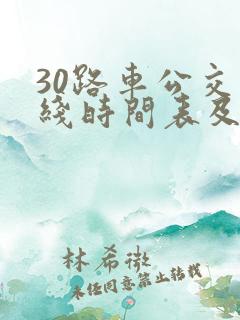 30路車公交
綫時間表及
林希微
未經同意禁止轉載